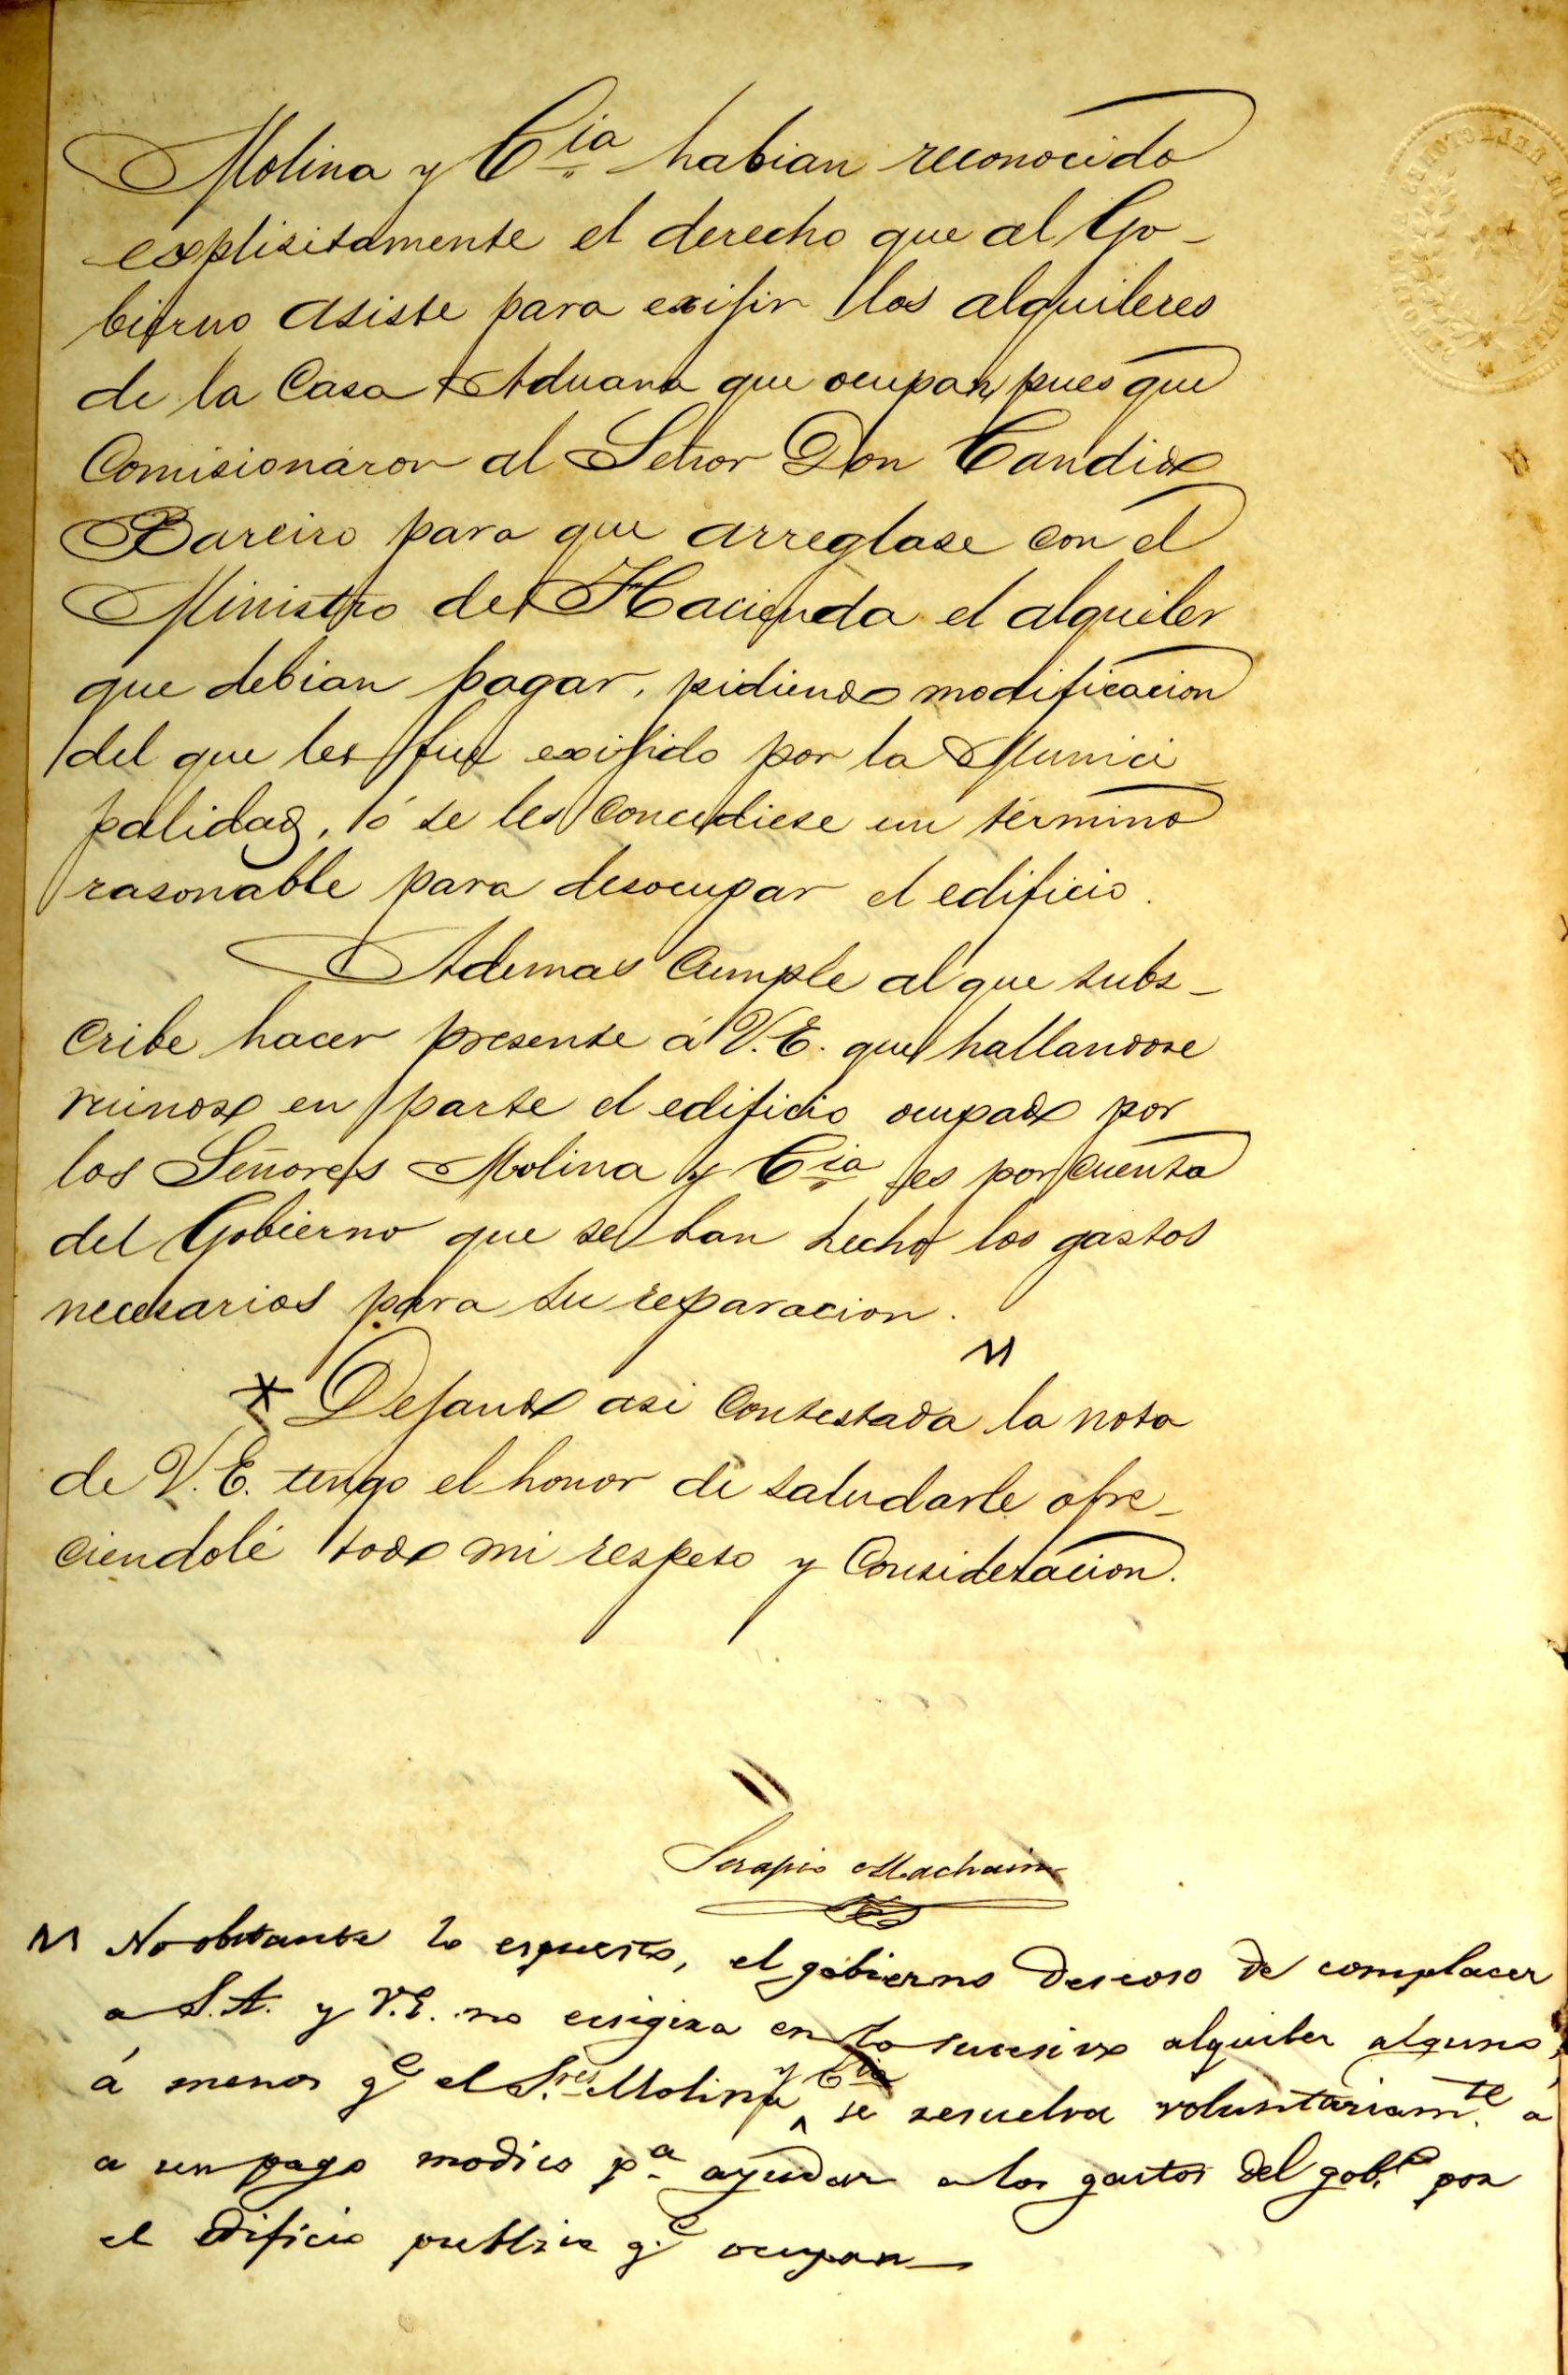 Molina y Cia habian reconocido
explisitamente el derecho que al Go-
bierno asiste para exijir los alquileres
de la Casa Aduana que ocupan, pues que
Comisionaron al Señor Don Candido
Bareiro para que arreglase con el
Ministro de Hacienda el alquiler
que debian pagar, pidiendo modificacion
del que les fue exijido por la Munici_
palidad, ó se les concediese un termino
rasonable para desocupar el edificio.
Ademas Cumple al que subs_
cribe hacer presente á V.E. que hallandose
ruinoso en parte el edificio ocupado por
los Señores Molina y Cia es por cuenta
del Gobierno que se han hecho los gastos
necesarios para su reparacion.
* Dejando asi Contestada la nota
de V.E. tengo el honor de saludarle ofre_
ciendole todo mi respeto y Consideracion.
Serapio Machain
No obstante lo espuesto, el gobierno deseoso de complacer
a S.A. y V.E. no ecsigira en lo sucesivo alquiler alguno,
á menos qe el Sres Molina y Cia se resuelva voluntariamte á
a un pago modico pa ayudar a los gastos del gobno por
el edificio publico qe ocupan